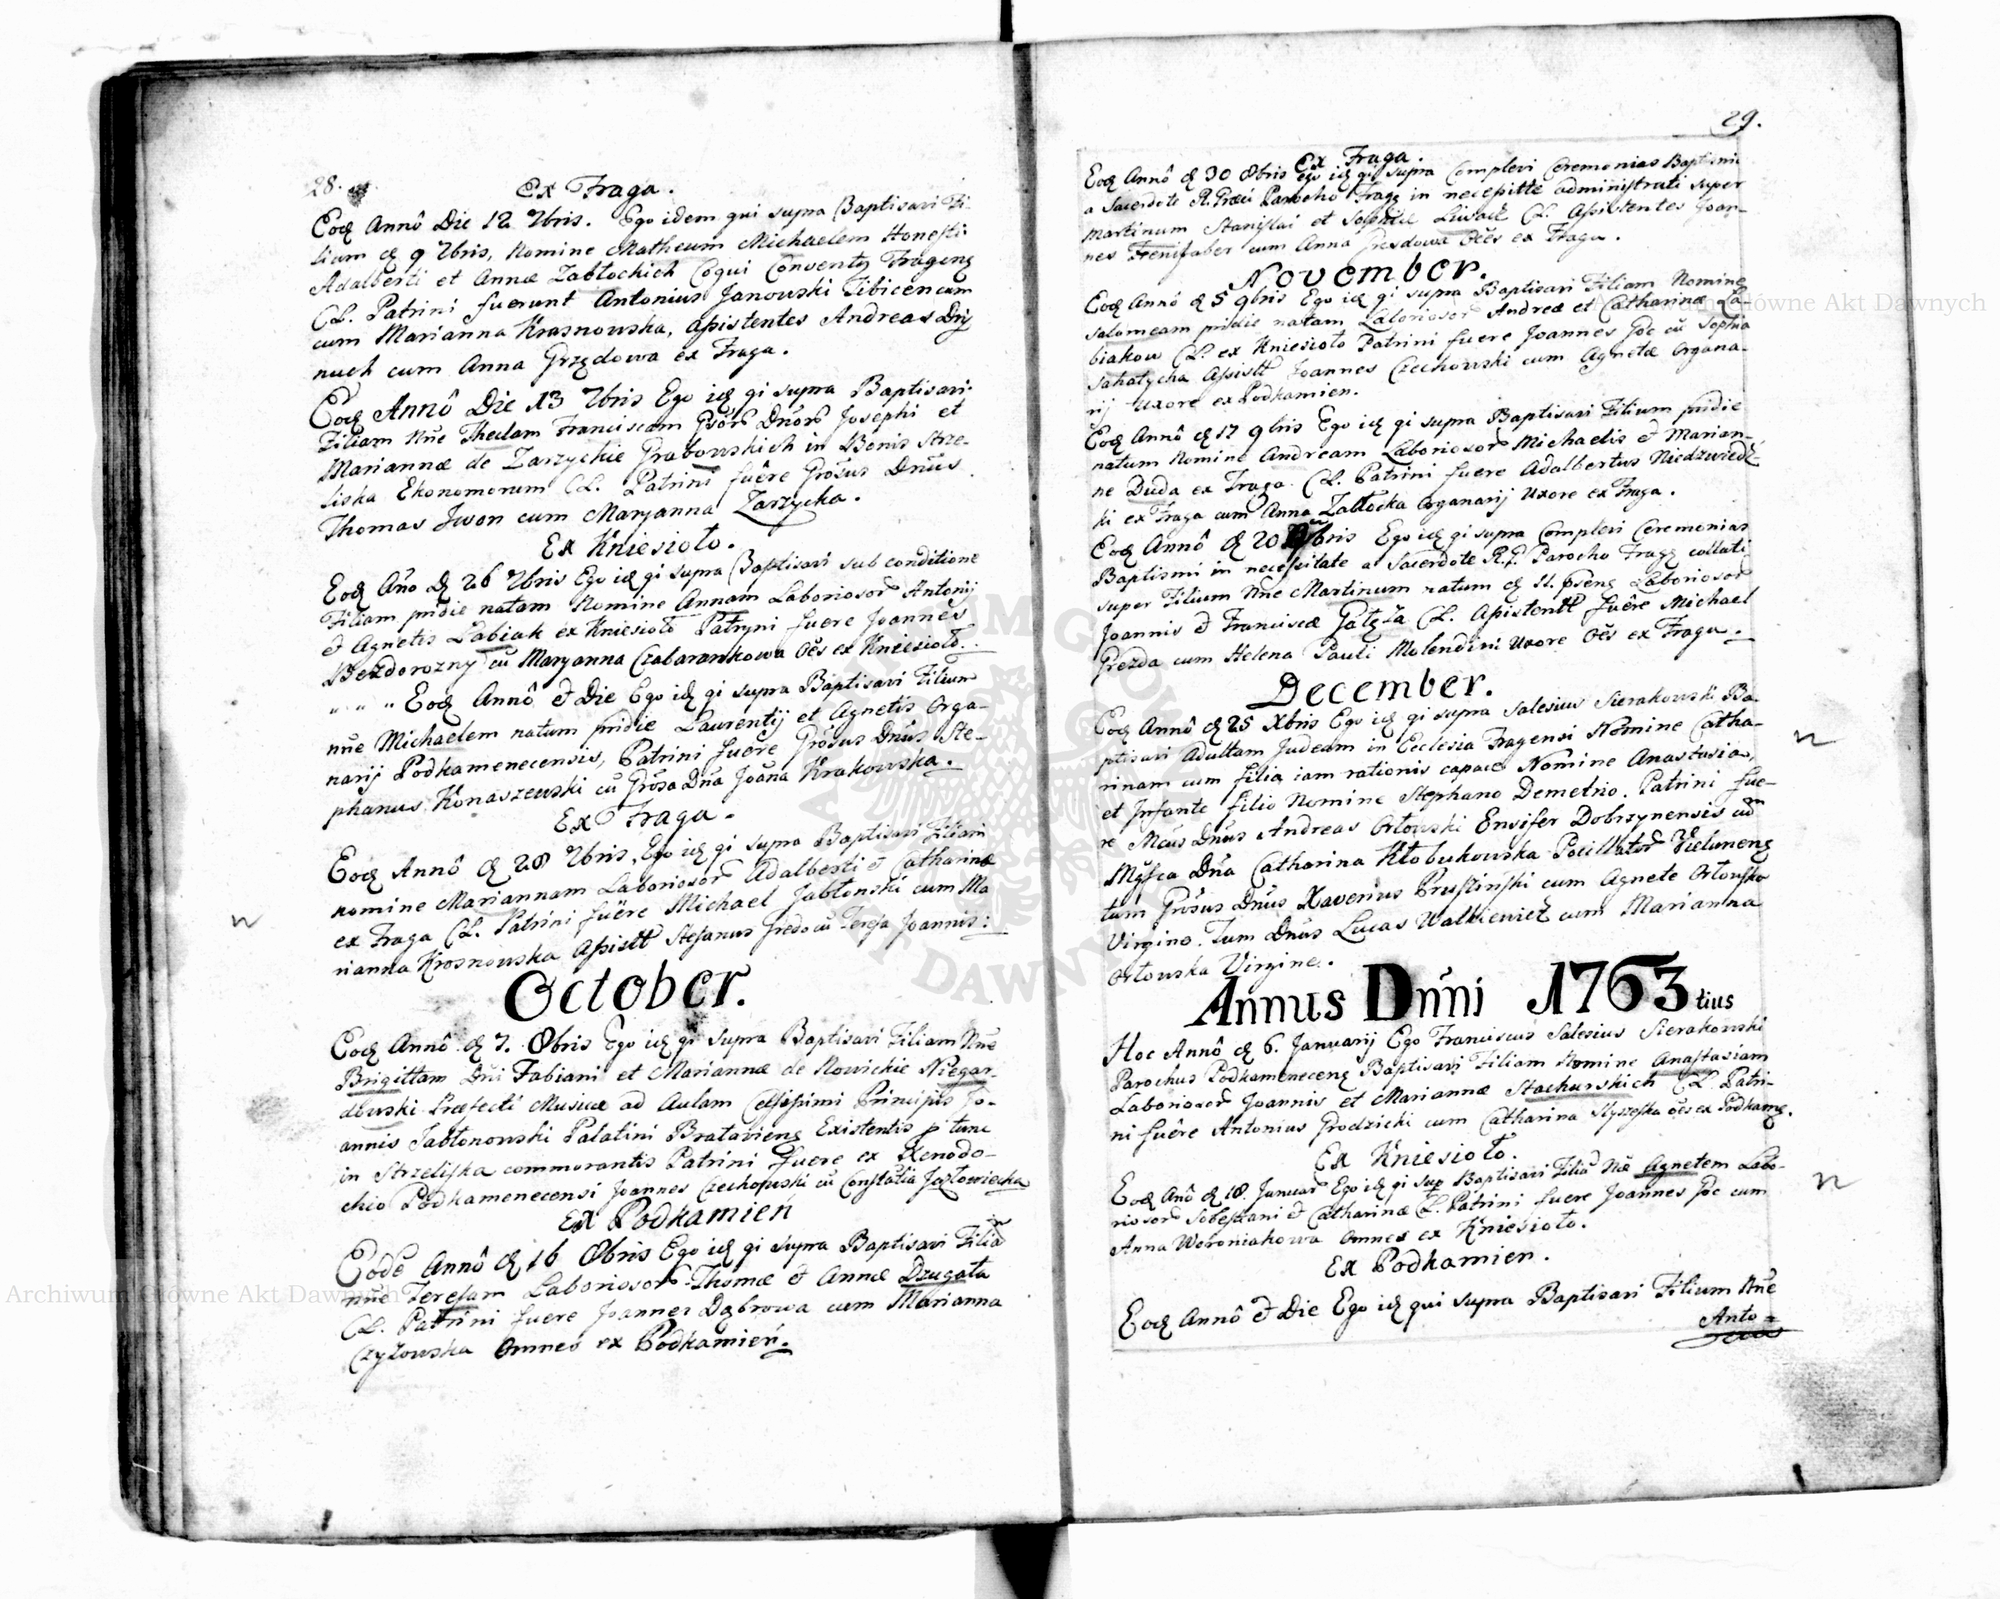 28.
Ex Fraga.
Eođ Annô Die 12 7bris. Ego idem qui supra Baptisavi Fi-
lium đ 9 7bris, Nomine Matheum Michaelem Honesti
Adalberti et Annæ Zabłockich Coqui Conventꝰ Fragenꝭ
CL. Patrini fuerunt Antonius Janowski Tibicen cum
cum Marianna Krasnowska, Assistentes Andreas Dry
nuch cum Anna Grzędowa ex Fraga.
Eođ Annô Die 13 7bris Ego iđ qi supra Baptisavi
Filiam Nñe Theclam Franciscam Gsōr Dnōr Josephi et
Mariannæ de Zarzyckie Grabowskich in Bonis Strze-
liska Ekonomorum CL. Patrini fuêre Grosus Dnus
Thomas Jwon cum Maryanna Zarzycka.
Ex Kniesioło.
Eođ Año đ 26 7bris Ego iđ qi supra Baptisavi sub conditione
Filiam pridie natam Nomine Annam Laboriosor Antonij
& Agnetis Babiak ex Kniesioło Patryni fuere Joannes
Bezdorozny cū Maryanna Czabarankowa Oēs ex Kniesioło.
" " " Eođ Annô & Die Ego iđ qi supra Baptisavi Filium
nñe Michaelem natum pridie Laurentij et Agnetis Orga-
narij Podkamenecensis, Patrini fuêre Grosus Dnus Ste-
phanus Konaszewski cū Grosa Dña Joana Krakowska.
Ex Fraga.
Eođ Annô đ 28 7bris, Ego iđ qi supra Baptisavi Filiam
nomine Mariannam Laboriosor Adalberti & Catharinæ
ex Fraga CL. Patrini fuêre Michael Jabłonski cum Ma
rianna Krosnowska Assistt Stefanus Gredo cū Teresa Joannis:
October.
Eođ Annô đ 7. 8bris Ego iđ qi supra Baptisavi Filiam Nñe
Brigittam Dni Fabiani et Mariannæ de Nowickie Niegar-
dłuski Præfecti Musicæ ad Aulam Celsissimi Principis Jo-
annis Jabłonowski Palatini Bratavienꝭ Existentis p tunc
in Strzeliska commorantis Patrini fuere ex Xenodo-
chio Podkamenecensi Joannes Czechowski cū Constãtia Jazłowiecka
Ex Podkamień
Eodē Annô đ 16 8bris Ego iđ qi supra Baptisavi Filiam
nñe Teresam Laboriosor Thomæ & Annæ Dzugała
CL. Patrini fuere Joannes Dąbrowa cum Marianna
Czyżowska Omnes ex Podkamień.
29.
Ex Fraga.
Eođ Annô đ 30 8bris Ego iđ qi supra Complevi Ceremonias Baptismi
a Sacerdote R. Græci Parocho Fragꝭ in necessitte administrati super
Martinum Stanislai et Sophiæ CL. Assistentes Joan-
nes Frenifaber cum Anna Grezdowa Oēs ex Fraga.
November.
Eođ Annô đ 5 9bris Ego iđ qi supra Baptisavi Filiam Nomine
Salomeam pridie natam Laboriosor Andreæ et Catharinæ Ła
biakow CL. ex Kniesioło Patrini fuere Joannes Goc cū Sophia
Sahatycha Assistt Joannes Czechowski cum Agnetæ Organa-
rij Uxore ex Podkamien.
Eođ Annô đ 17 9bris Ego iđ qi supra Baptisavi Filium pridie
natum Nomine Andream Laboriosor Michaelis & Marian-
ne Duda ex Fraga. CL. Patrini fuere Adalbertus Niedzwiedz-
ki ex Fraga cum Anna Zabłocka Organarij Uxore ex Fraga.
Eođ Annô đ 20 9bris Ego iđ qi supra Complevi Ceremonias
Baptismi in necessitate a Sacerdote R. g. Parocho Fragꝭ collati
super Filium Nñe Martinum natum đ 11. pssenꝭ Laboriosor
Joannis & Franciscæ Gałęza CL. Assistentt fuêre Michael
Grezda cum Helena Pauli Molendini Uxore Oēs ex Fraga.
December.
Eođ Annô đ 25 Xbris Ego iđ qi supra Salesius Sierakowski Ba-
ptisavi Adultam Judeam in Ecclesia Fragensi Nomine Catha-
rinam cum filia iam rationis capace Nomine Anastasia,
et Jnfante filio Nomine Stephano Demetrio. Patrini fue-
re Mcus Dnus Andreas Orłowski Ensifer Dobrzynensis cum
Mgfca Dña Catharina Kłobukowska Pocillator Vielunenꝭ
tum Grosus Dnus Xaverius Pruszinski cum Agnete Orłowska
Virgine. Tum Dnus Lucas Walkiewicz cum Marianna
Orłowska Virgine.
Annus Dnni 1763tius
Hoc Annô đ 6. Januarij Ego Franciscus Salesius Sierakowski
Parochus Podkamenecenꝭ Baptisavi Filiam Nomine Anastasiam
Laboriosor Joannis et Mariannæ Stachurskich CL. Patri-
ni fuêre Antonius Grodzicki cum Catharina Styszeska oēs ex Podkamę.
Ex Kniesioło.
Eođ Anô đ 18. Januar Ego iđ qi sup Baptisavi Filiā Nñe Agnetem Labo-
riosor Sobestiani & Catharinæ CL. Patrini fuere Joannes Goc cum
Anna Woroniakowa Omnes ex Kniesioło.
Ex Podkamien.
Eođ Annô & Die Ego iđ qui supra Baptisavi Filium Nñe
Anto=
Archiwum Główne Akt Dawnych
Archiwum Główne Akt Dawnych
ARCHIWUM GŁÓWNE AKT DAWNYCH